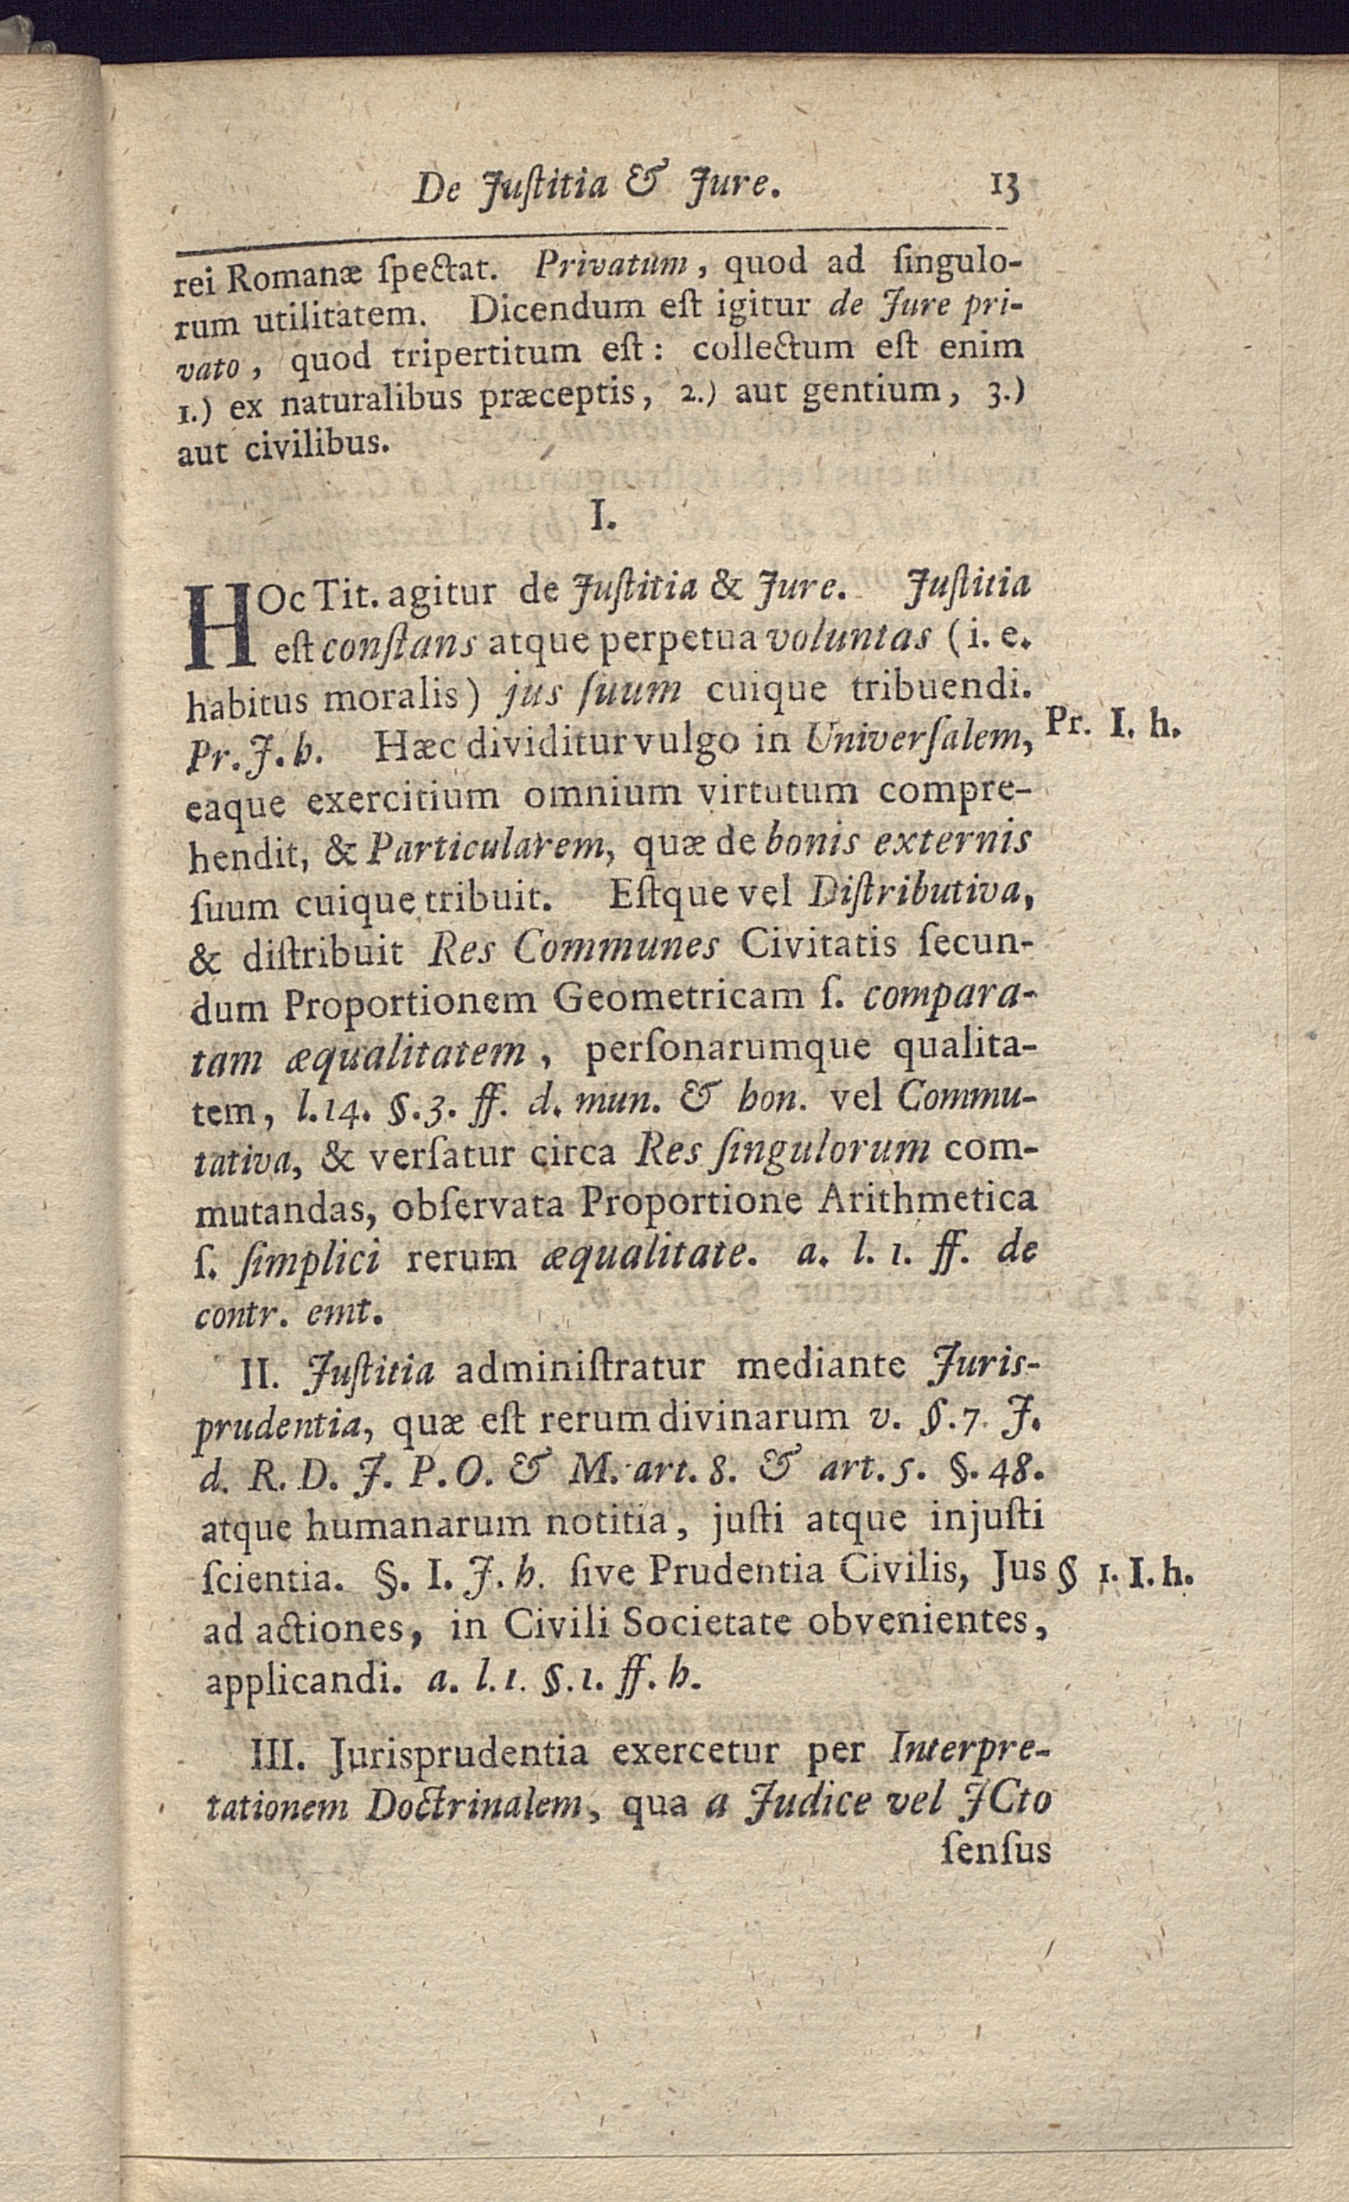 De Juſtitia & Jure. 13
rei Romanæ ſpectat. Privatum, quod ad ſingulo-
rum utilitatem. Dicendum eſt igitur de Jure pri-
vato, quod tripertitum eſt: collectum eſt enim
1.) ex naturalibus præceptis, 2.) aut gentium, 3.)
aut civilibus.
I.
HOc Tit. agitur de Juſtitia & Jure. Juſtitia
eſt conſtans atque perpetua voluntas (i. e.
habitus moralis) jus ſuum cuique tribuendi.
Pr. J. h. Hæc dividitur vulgo in Univerſalem, Pr. I. h.
eaque exercitium omnium virtutum compre-
hendit, & Particularem, quæ de bonis externis
ſuum cuique tribuit. Eſtque vel Diſtributiva,
& diſtribuit Res Communes Civitatis ſecun-
dum Proportionem Geometricam ſ. compara-
tam æqualitatem, perſonarumque qualita-
tem, l. 14. §. 3. ff. d. mun. & hon. vel Commu-
tativa, & verſatur circa Res ſingulorum com-
mutandas, obſervata Proportione Arithmetica
ſ. ſimplici rerum æqualitate. a. l. 1. ff. de
contr. emt.
II. Juſtitia adminiſtratur mediante Juris-
prudentia, quæ eſt rerum divinarum v. §. 7. J.
d. R. D. J. P. O. & M. art. 8. & art. 5. §. 48.
atque humanarum notitia, juſti atque injuſti
ſcientia. §. I. J. h. ſive Prudentia Civilis, Jus § 1. I. h.
ad actiones, in Civili Societate obvenientes,
applicandi. a. l. 1. §. 1. ff. h.
III. Jurisprudentia exercetur per Interpre-
tationem Doctrinalem, qua a Judice vel JCto
ſenſus